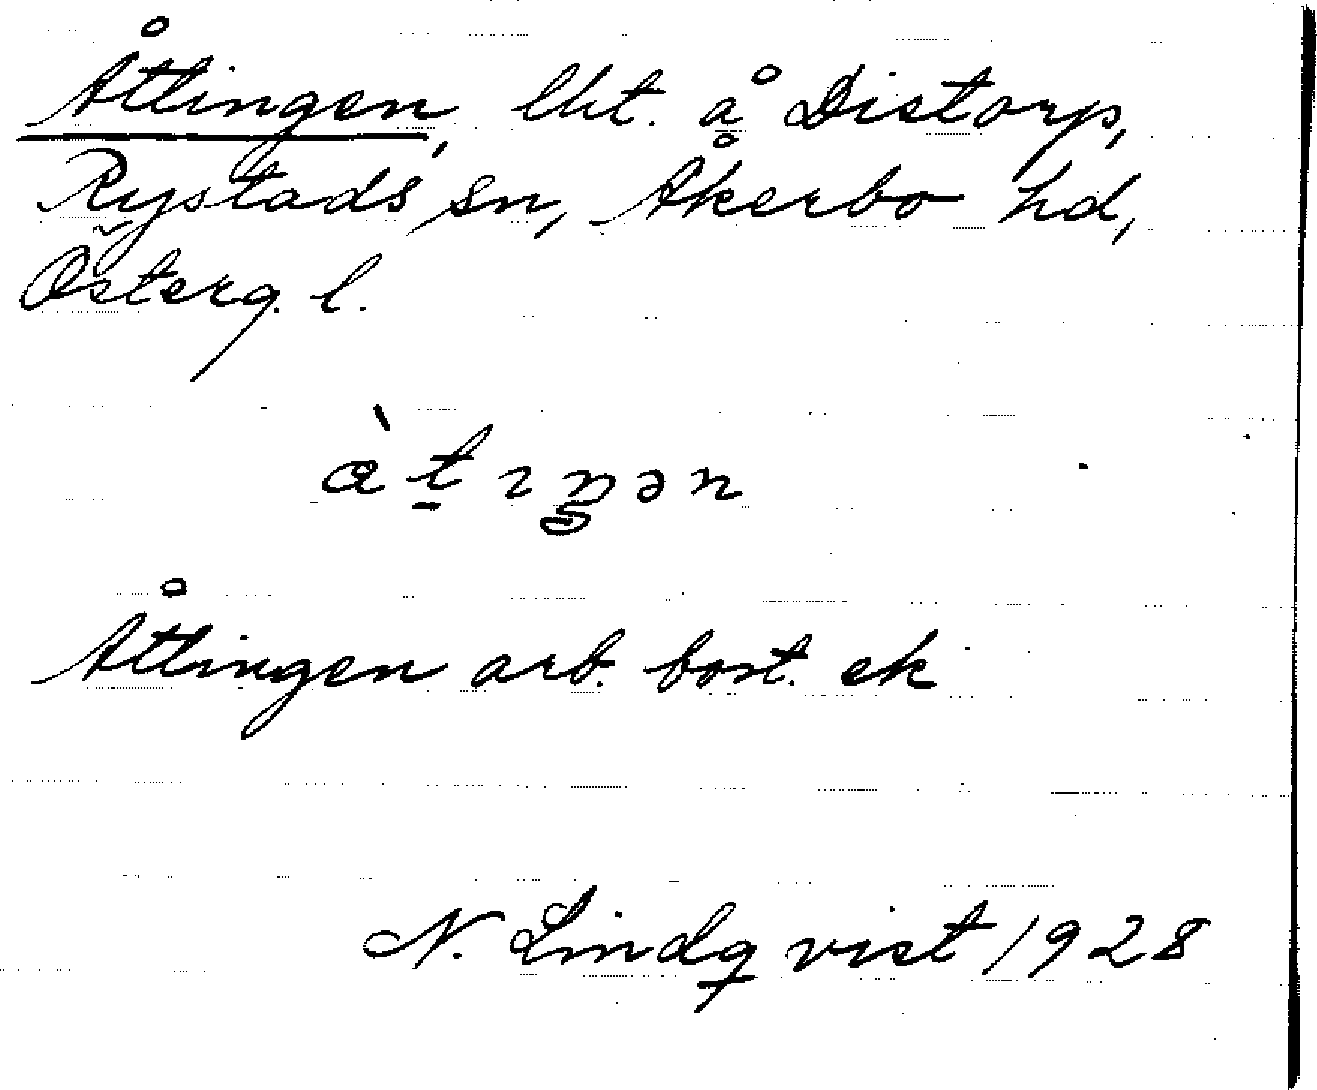 Åttingen, lht. å Distorp,
Rystads sn, Åkerbo hd,
Österg. l.
Åttingen arb. bost. ek
N. Lindqvist 1928